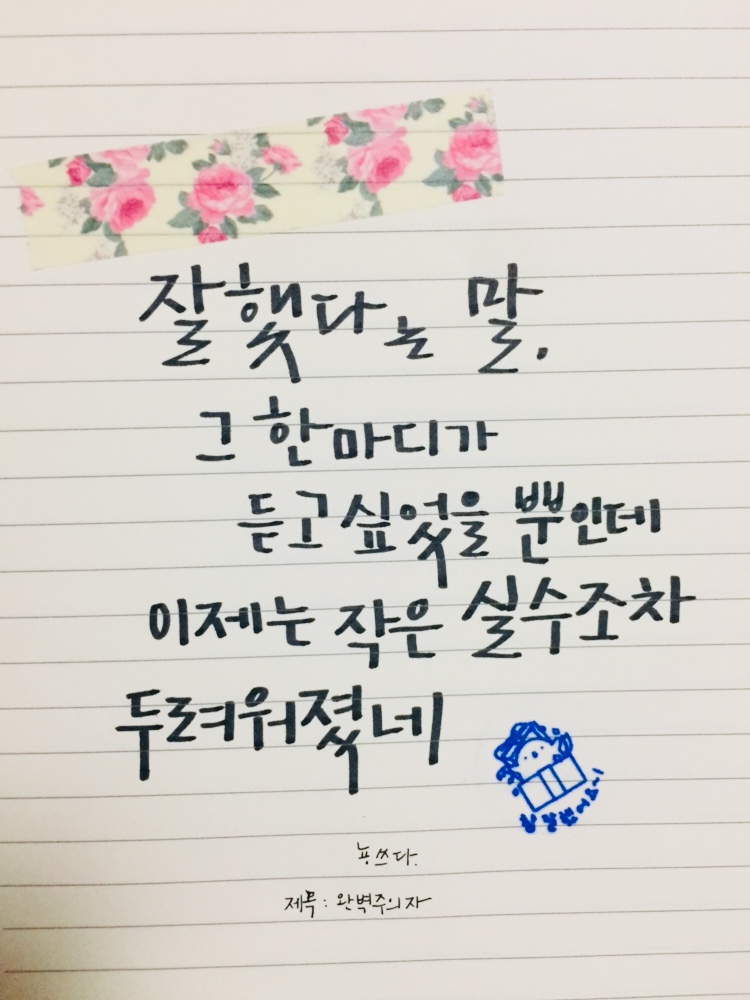 잘했다는 말,
그 한마디가
듣고 싶었을 뿐인데
이제는 작은 실수조차
두려워졌네
참 잘했어요~!
뇽쓰다.
제목 : 완벽주의자